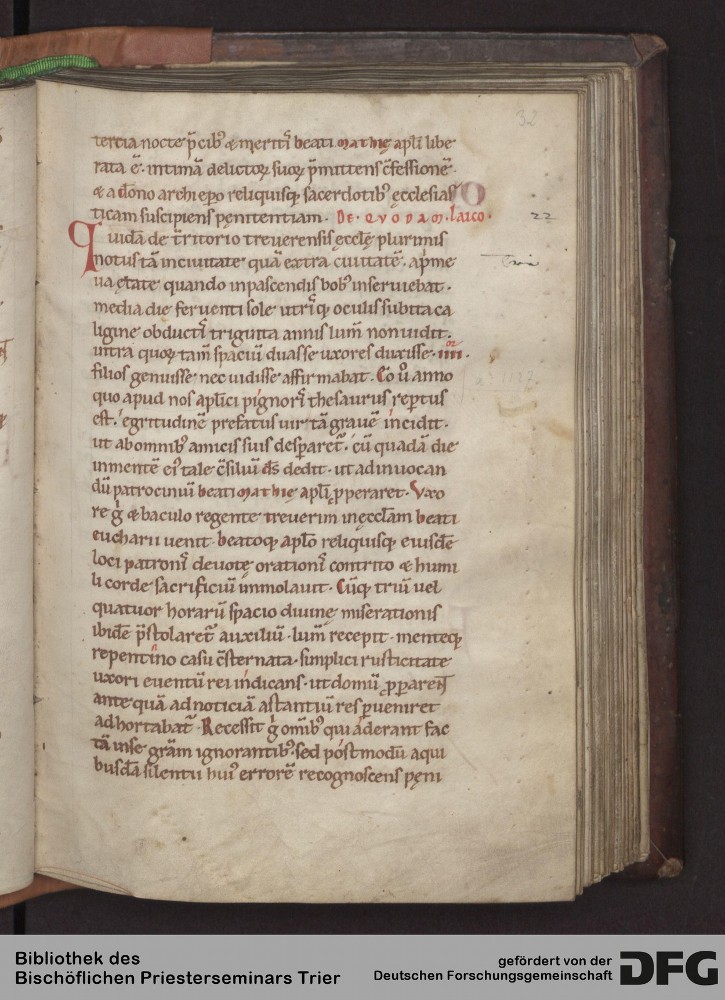 32
tercia nocte p̄cib᷒ & meritꝭ beati mathię apl̄i libe
rata ē. intimā delictoꝝ suoꝝ p̄mittens ɔ̄fessionē.
& a dōno archiep̄o reliquisq; sacerdotib᷒ ęcclesias
ticam suscipiens pęnitentiam. De. QVODAM. laico.
22
Quidā de t̄ritorio treuerensis ęccl̄ę plurimis
notus tā inciuitate quā extra ciuitatē. ap̄me
ua ętate quando inpascendis bob᷒ inseruiebat.
media die feruenti sole utriq; oculis subita ca
ligine obductꝭ triginta annis lum̄ non uidit.
intra quoꝝ tam̄ spaciū duas se uxores duxisse. iiiior.
filios genuisse nec uidisse affirmabat. Eo ū anno
quo apud nos apl̄ici pignorꝭ thesaurus rep̄tus
est. egritudinē prefatus uir tā grauē incidit.
ut ab omnib᷒ amicis suis desꝑaret᷑. cū quadā die
inmentē ei᷒ tale ɔ̄siliū dc̄s dedit. ut ad inuocan
dū patrociniū beati mathię apl̄i ꝓperaret. Vxo
re ḡ & baculo regente treuerim in ęccl̄am beati
eucharii uenit. beatoq; apl̄o reliquisq; eiusdē
loci patronꝭ deuotę orationꝭ contrito & humi
li corde sacrificiū immolauit. Cūq; triū uel
quatuor horarū spacio diuinę miserationis
ibidē p̄stolaret᷑ auxiliū. lum̄ recepit. menteq;
repentino casu ɔ̄sternata. simplici rusticitate
uxori euentū rei indicans. ut domū ꝓꝑarent
ante quā ad noticiā astantiū res ꝑueniret
adhortabat᷑. Recessit ḡ om̄ib᷒ qui aderant fac
tā in se gr̄am ignorantib᷒. sed postmodū a qui
busdā silentii hui᷒ errorē recognoscens pęni
Bibliothek des
Bischöflichen Priesterseminars Trier
gefördert von der
Deutschen Forschungsgemeinschaft
DFG